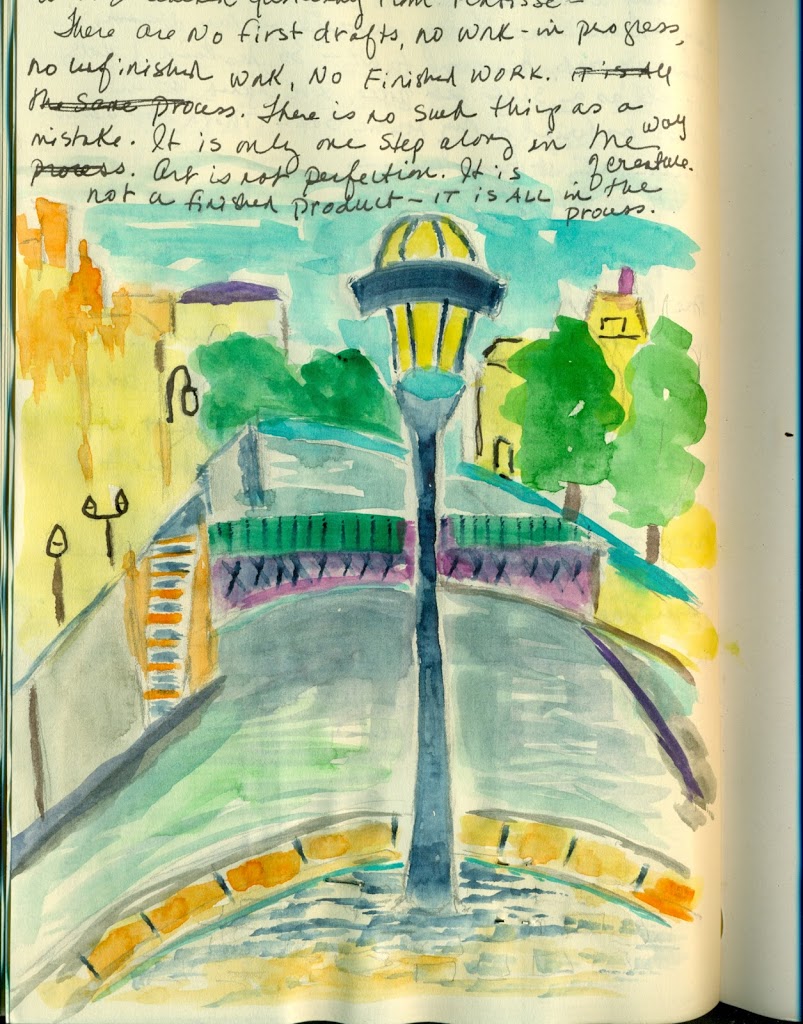 from
There are No first drafts, no work-in progress,
no unfinished work, No Finished WORK. it is all
the same process. There is no such thing as a
mistake. It is only one step along in the way
process. Art is not perfection. It is of creature.
not a finished product – IT IS ALL in the
process.